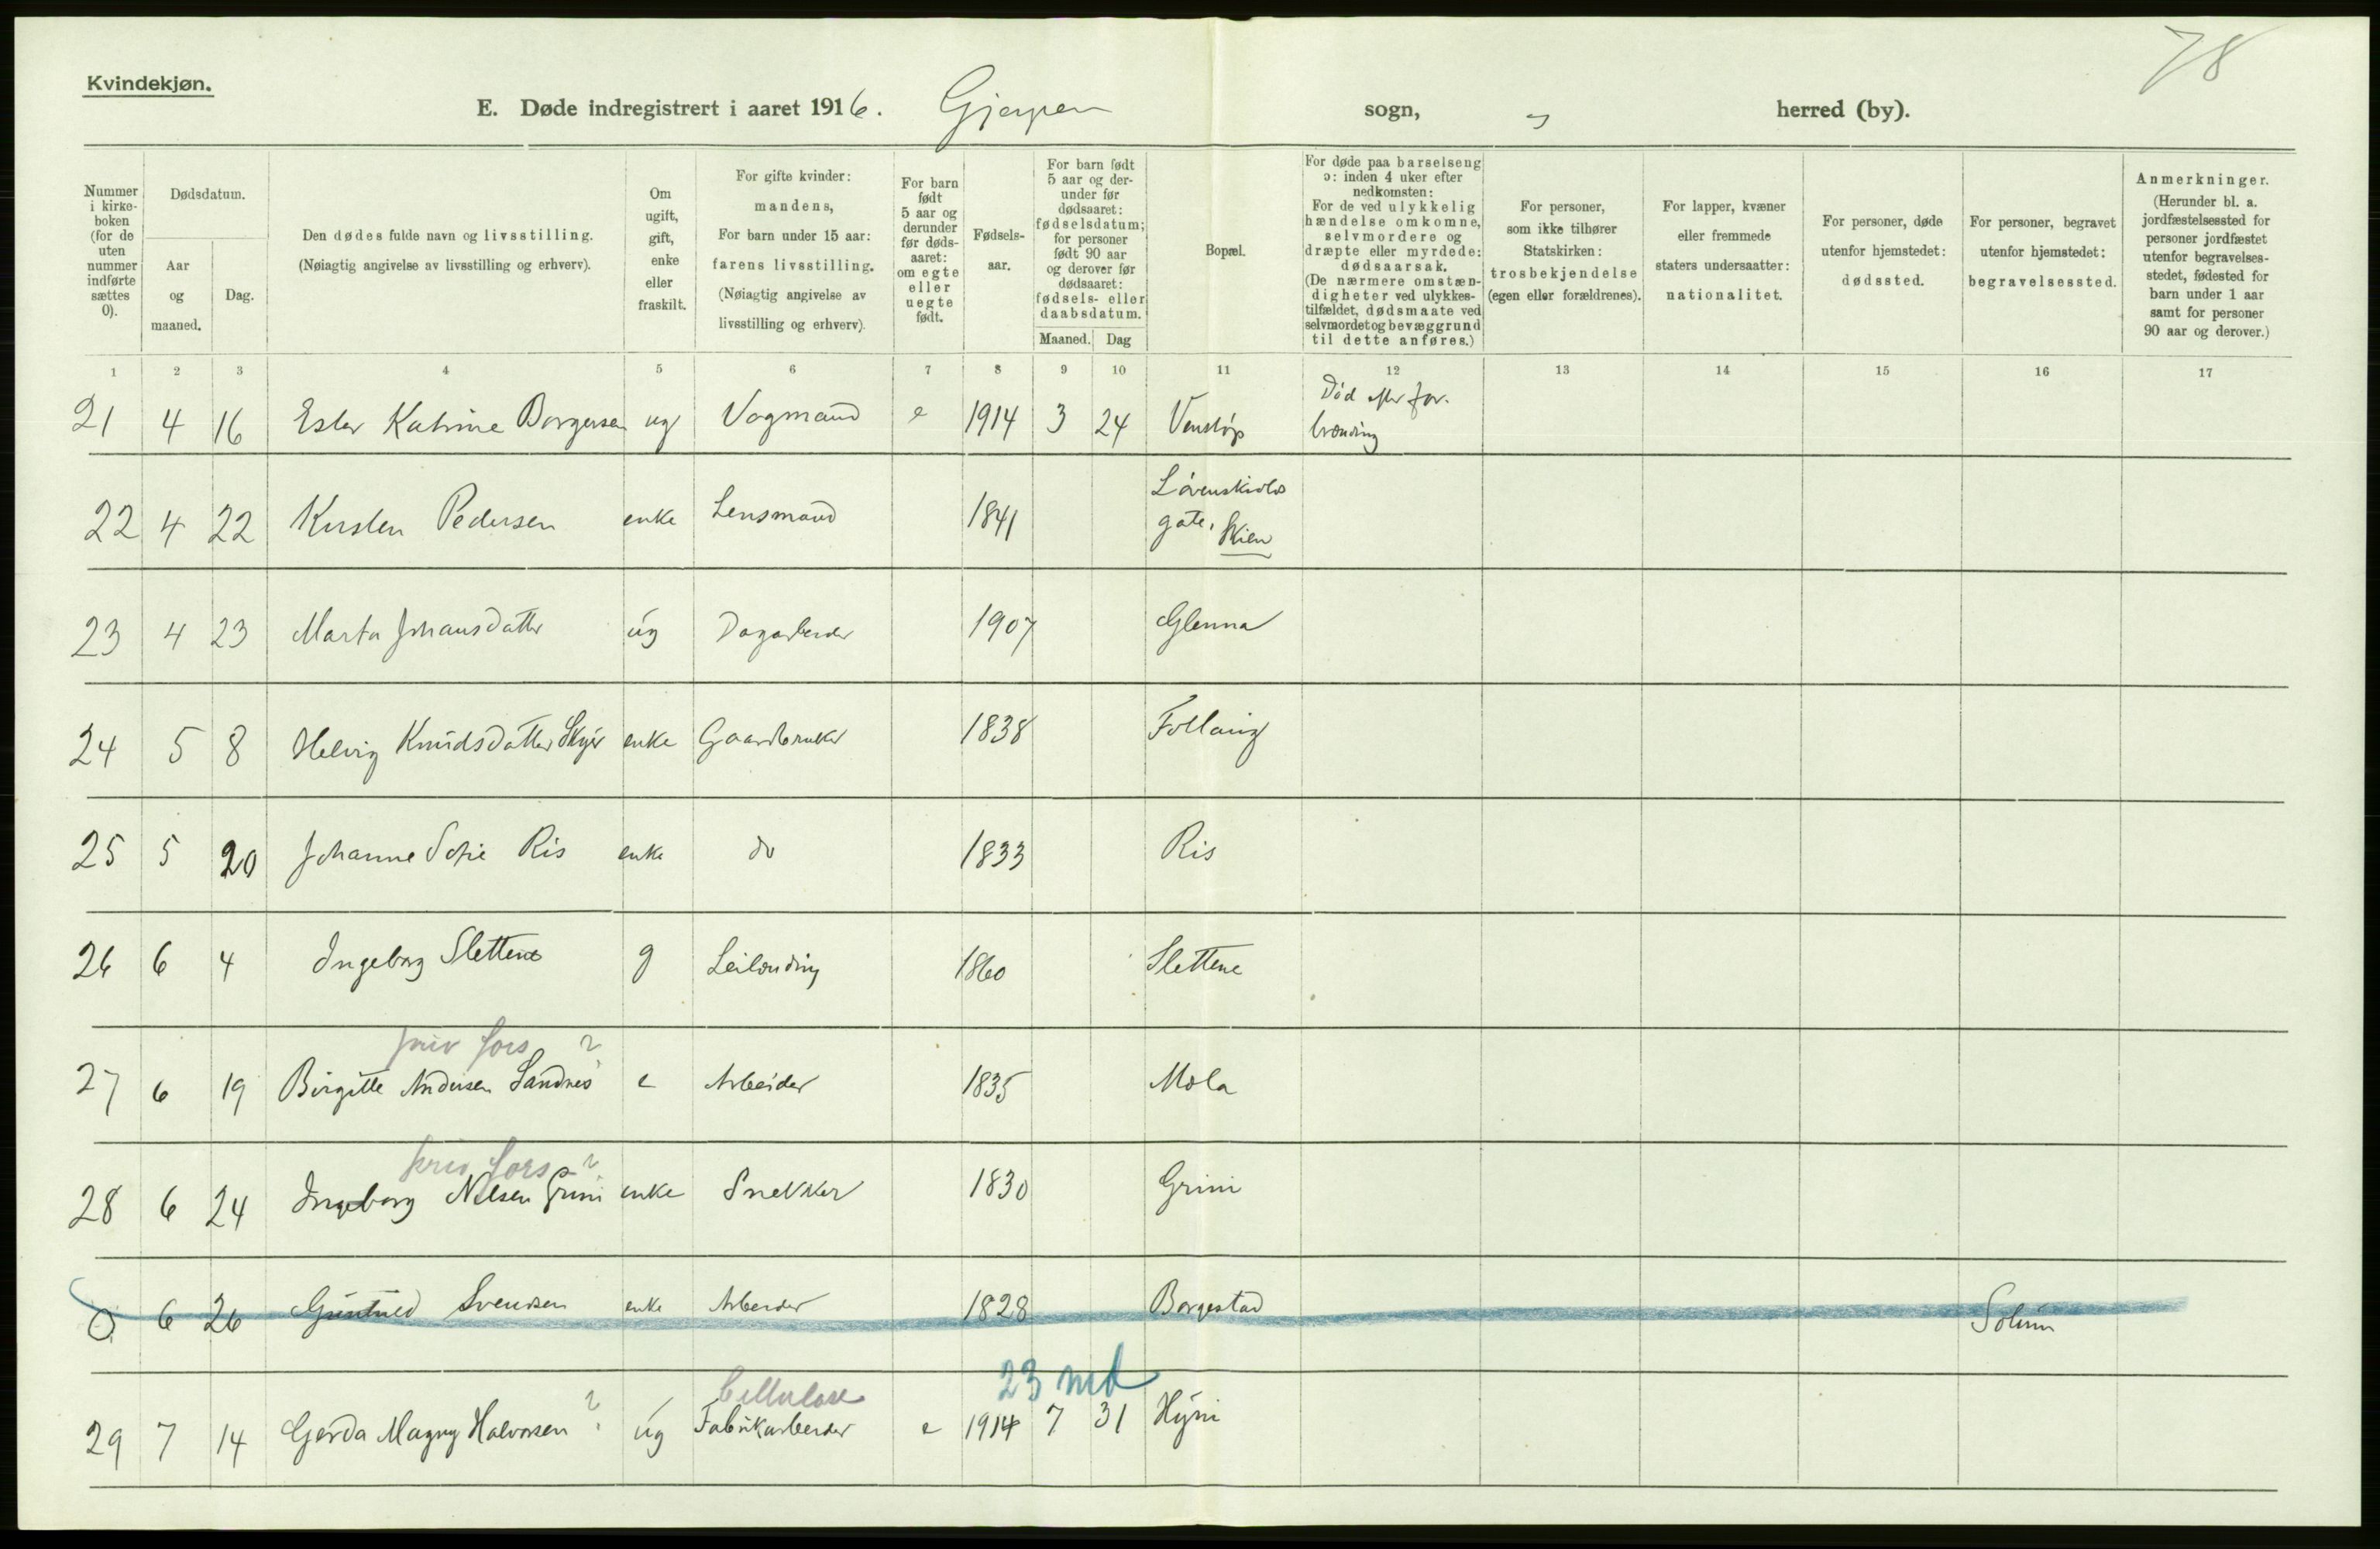 78
Kvindekjøn.
E. Døde indregistrert i aaret 1916. Gjerpen sogn, " herred (by).
Nummer i kirke-boken (for de uten nummer indførte sættes 0).
Dødsdatum.
Aar og maaned.
Dag.
Den dødes fulde navn og livsstilling.
(Nøiagtig angivelse av livsstilling og erhverv).
Om ugift, gift, enke eller fraskilt.
For gifte kvinder: mandens,
For barn under 15 aar: farens livsstilling.
(Nøiagtig angivelse av livsstilling og erhverv).
For barn født 5 aar og derunder før døds-aaret: om egte eller uegte født.
Fødsels-aar.
For barn født 5 aar og der-under før dødsaaret: fødselsdatum; for personer født 90 aar og derover før dødsaaret: fødsels- eller daabsdatum.
Maaned. Dag
Bopæl.
For døde paa barselseng ɔ: inden 4 uker efter nedkomsten:
For de ved ulykkelig hændelse omkomne, selvmordere og dræpte eller myrdede: dødsaarsak.
(De nærmere omstæn-digheter ved ulykkes-tilfældet, dødsmaate ved selvmordet og bevæggrund til dette anføres.)
For personer, som ikke tilhører Statskirken: trosbekjendelse (egen eller forældrenes).
For lapper, kvæner eller fremmede staters undersaatter: nationalitet.
For personer, døde utenfor hjemstedet: dødssted.
For personer, begravet utenfor hjemstedet: begravelsessted.
Anmerkninger.
(Herunder bl. a. jordfæstelsessted for personer jordfæstet utenfor begravelses-stedet, fødested for barn under 1 aar samt for personer 90 aar og derover.)
1 2 3 4 5 6 7 8 9 10 11 12 13 14 15 16 17
21 4 16 Ester Katrine Borgersen ug Vogmand e 1914 3 24 Venstøp Død efter for-
brænding
22 4 22 Kirsten Pedersen enke Lensmand 1841 Løvenskiolds
gate, Skien
23 4 23 Marta Johansdatter ug Dagarbeider 1907 Glenna
24 5 8 Helvig Knudsdatter enke Gaardbruker 1838 Follaug
25 5 20 Johanne Sofie Ris enke do 1833 Ris
26 6 4 Ingeborg Slettene g Leilænding 1860 Slettene
priv fors ?
27 6 19 Birgitte Andersen Sandnes e Arbeider 1835 Mæla
priv fors ?
28 6 24 Ingeborg Nilsen Grini enke Snekker 1830 Grini
0 6 26 Svendsen enke Arbeider 1828 Borgestad Solum
Cellulose 23 md
29 7 14 Gerda Magny Halvorsen ? ug Fabrikarbeider e 1914 7 31 Hyni